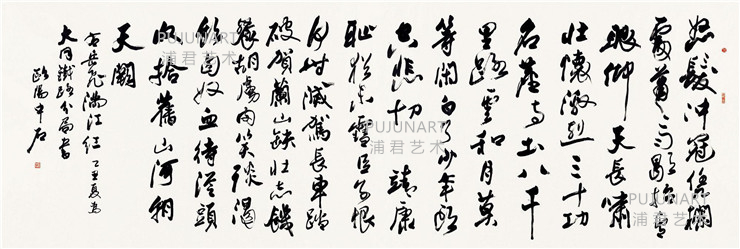 怒髮冲冠憑欄
處萧萧雨歇抬望
眼仰天長嘯
壮懷激烈三十功
名塵与土八千
里路雲和月莫
等閑白了少年頭
空悲切靖康
恥猶未雪臣子恨
何时滅駕長車踏
破賀蘭山缺壮志饑
餐胡虜肉笑谈渴
飲匈奴血待從頭
收拾舊山河朝
天闕
右岳飛滿江红 乙丑夏為
大同鐵路分局書
欧陽中石
PUJUNART
浦君艺术
PUJUNART
浦君艺术
PUJUNART
浦君艺术
PUJUNART
浦君艺术
PUJUNART
浦君艺术